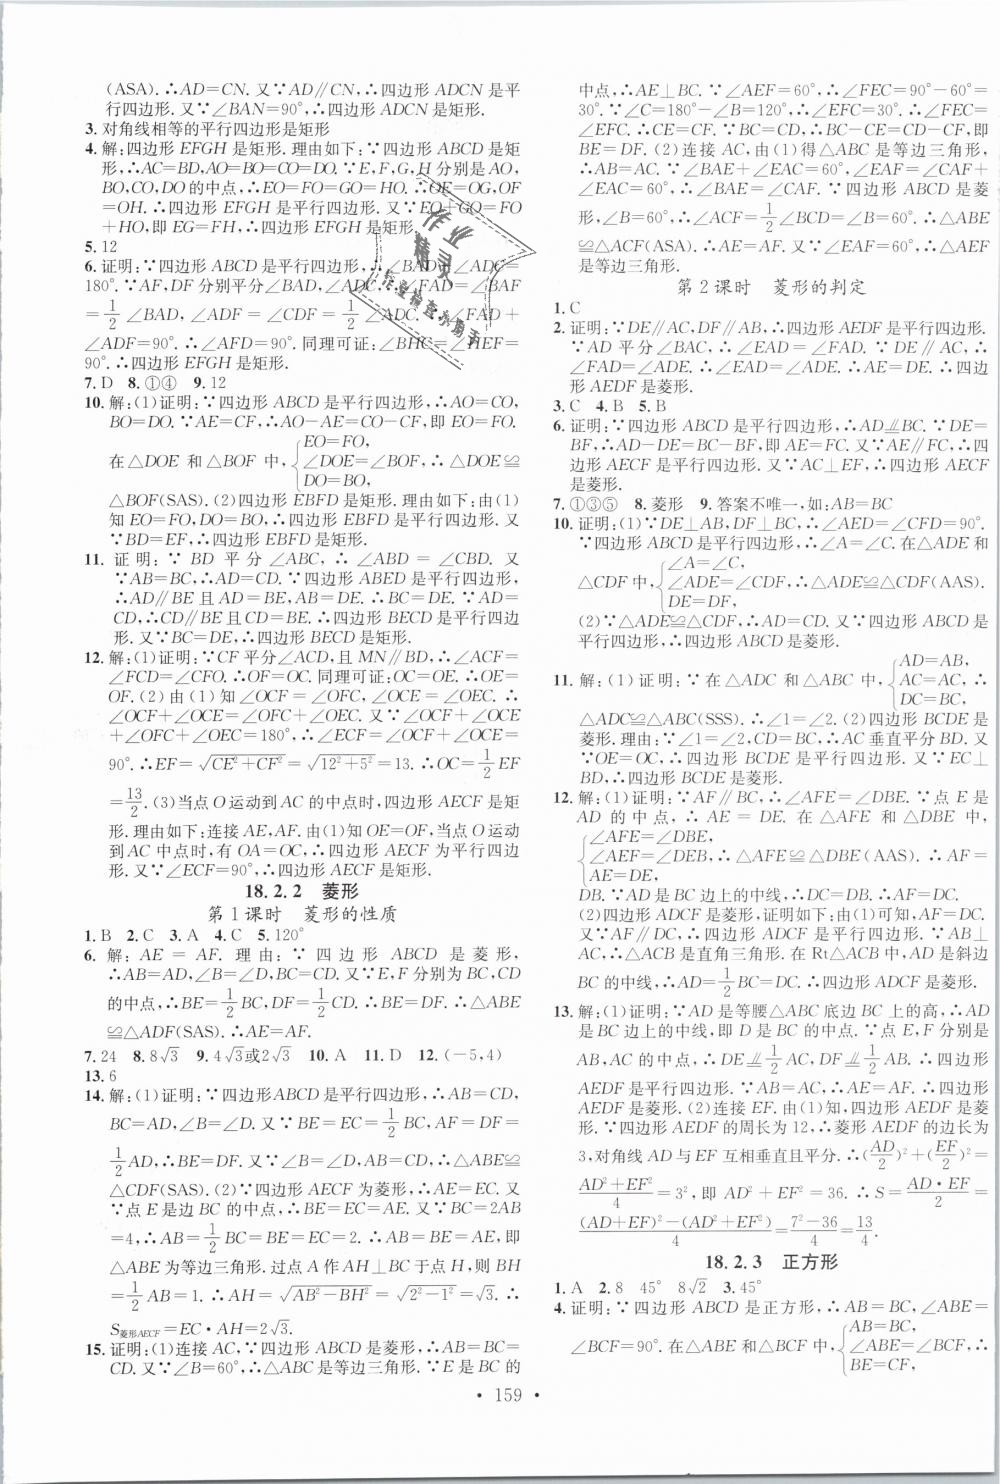 (ASA). ∴AD=CN. 又∵AD∥CN, ∴四边形 ADCN 是平
行四边形. 又∵∠BAN=90°, ∴四边形 ADCN 是矩形.
3. 对角线相等的平行四边形是矩形
4. 解:四边形 EFGH 是矩形. 理由如下:∵四边形 ABCD 是矩
形,∴AC=BD,AO=BO=CO=DO. ∵E,F,G,H 分别是 AO,
BO,CO,DO 的中点,∴EO=FO=GO=HO. ∴OE=OG,OF
=OH. ∴四边形 EFGH 是平行四边形. 又∵EO+GO=FO
+HO,即 EG=FH,∴四边形 EFGH 是矩形.
5. 12
6. 证明:∵四边形 ABCD 是平行四边形,∴∠BAD+∠ADC=
180°. ∵AF,DF 分别平分∠BAD,∠ADC,∴∠FAD=∠BAF
=1/2∠BAD, ∠ADF=∠CDF=1/2∠ADC. ∴∠FAD+
∠ADF=90°. ∴∠AFD=90°. 同理可证:∠BHC=∠HEF=
90°. ∴四边形 EFGH 是矩形.
7. D 8. ①④ 9. 12
10. 解:(1)证明:∵四边形 ABCD 是平行四边形,∴AO=CO,
BO=DO. ∵AE=CF,∴AO-AE=CO-CF,即 EO=FO.
在△DOE 和△BOF 中,{EO=FO, ∠DOE=∠BOF, DO=BO, ∴△DOE≌
△BOF(SAS). (2)四边形 EBFD 是矩形. 理由如下:由(1)
知 EO=FO,DO=BO,∴四边形 EBFD 是平行四边形. 又
∵BD=EF,∴四边形 EBFD 是矩形.
11. 证明:∵BD 平分∠ABC,∴∠ABD=∠CBD. 又
∵AB=BC,∴AD=CD. ∵四边形 ABED 是平行四边形,
∴AD∥BE 且 AD=BE,AB=DE. ∴BC=DE. ∵AD=
CD,∴CD∥BE 且 CD=BE. ∴四边形 BECD 是平行四边
形. 又∵BC=DE,∴四边形 BECD 是矩形.
12. 解:(1)证明:∵CF 平分∠ACD,且 MN∥BD,∴∠ACF=
∠FCD=∠CFO. ∴OF=OC. 同理可证:OC=OE. ∴OE=
OF. (2)由(1)知∠OCF=∠OFC,∠OCE=∠OEC. ∴
∠OCF+∠OCE=∠OFC+∠OEC. 又∵∠OCF+∠OCE
+∠OFC+∠OEC=180°,∴∠ECF=∠OCF+∠OCE=
90°. ∴EF=√(CE²+CF²)=√(12²+5²)=13. ∴OC=1/2EF
=13/2. (3)当点 O 运动到 AC 的中点时,四边形 AECF 是矩
形. 理由如下:连接 AE,AF. 由(1)知 OE=OF,当点 O 运动
到 AC 中点时,有 OA=OC,∴四边形 AECF 为平行四边
形. 又∵∠ECF=90°,∴四边形 AECF 是矩形.
18.2.2 菱形
第1课时 菱形的性质
1. B 2. C 3. A 4. C 5. 120°
6. 解:AE=AF. 理由:∵四边形 ABCD 是菱形,
∴AB=AD,∠B=∠D,BC=CD. 又∵E,F 分别为 BC,CD
的中点,∴BE=1/2BC,DF=1/2CD. ∴BE=DF. ∴△ABE
≌△ADF(SAS). ∴AE=AF.
7. 24 8. 8√3 9. 4√3或2√3 10. A 11. D 12. (-5,4)
13. 6
14. 解:(1)证明:∵四边形ABCD 是平行四边形,∴AB=CD,
BC=AD,∠B=∠D. 又∵BE=EC=1/2BC,AF=DF=
1/2AD,∴BE=DF. 又∵∠B=∠D,AB=CD,∴△ABE≌
△CDF(SAS). (2)∵四边形 AECF 为菱形,∴AE=EC. 又
∵点 E 是边 BC 的中点,∴BE=EC=AE. 又∵BC=2AB
=4,∴AB=1/2BC=BE=EC=2. ∴AB=BE=AE,即
△ABE 为等边三角形. 过点 A 作 AH⊥BC 于点 H,则 BH
=1/2AB=1. ∴AH=√(AB²-BH²)=√(2²-1²)=√3. ∴
S菱形AECF=EC·AH=2√3.
15. 证明:(1)连接 AC,∵四边形 ABCD 是菱形,∴AB=BC=
CD. 又∵∠B=60°,∴△ABC 是等边三角形. ∵E 是 BC 的
中点,∴AE⊥BC. ∵∠AEF=60°,∴∠FEC=90°-60°=
30°. ∵∠C=180°-∠B=120°,∴∠EFC=30°. ∴∠FEC=
∠EFC. ∴CE=CF. ∵BC=CD,∴BC-CE=CD-CF,即
BE=DF. (2)连接 AC,由(1)得△ABC 是等边三角形,
∴AB=AC. ∵∠BAE+∠EAC=60°,∠EAF=∠CAF+
∠EAC=60°,∴∠BAE=∠CAF. ∵四边形 ABCD 是菱
形,∠B=60°,∴∠ACF=1/2∠BCD=∠B=60°. ∴△ABE
≌△ACF(ASA). ∴AE=AF. 又∵∠EAF=60°,∴△AEF
是等边三角形.
第2课时 菱形的判定
1. C
2. 证明:∵DE∥AC,DF∥AB,∴四边形 AEDF 是平行四边形.
∵AD 平分∠BAC,∴∠EAD=∠FAD. ∵DE∥AC,∴
∠FAD=∠ADE. ∴∠EAD=∠ADE. ∴AE=DE. ∴四边形
AEDF 是菱形.
3. C 4. B 5. B
6. 证明:∵四边形 ABCD 是平行四边形,∴AD⫽BC. ∵DE=
BF,∴AD-DE=BC-BF,即 AE=FC. 又∵AE∥FC,∴四
边形 AECF 是平行四边形. 又∵AC⊥EF,∴四边形 AECF
是菱形.
7. ①③⑤ 8. 菱形 9. 答案不唯一,如:AB=BC
10. 证明:(1)∵DE⊥AB,DF⊥BC,∴∠AED=∠CFD=90°.
∵四边形ABCD 是平行四边形,∴∠A=∠C. 在△ADE 和
△CDF 中,{∠A=∠C, ∠ADE=∠CDF, DE=DF, ∴△ADE≌△CDF(AAS).
(2)∵△ADE≌△CDF,∴AD=CD. 又∵四边形 ABCD 是
平行四边形,∴四边形 ABCD 是菱形.
11. 解:(1)证明:∵在△ADC 和△ABC 中,{AD=AB, AC=AC, DC=BC, ∴
△ADC≌△ABC(SSS). ∴∠1=∠2. (2)四边形 BCDE 是
菱形. 理由:∵∠1=∠2,CD=BC,∴AC 垂直平分 BD. 又∵
OE=OC,∴四边形 BCDE 是平行四边形. 又∵EC⊥
BD,∴四边形 BCDE 是菱形.
12. 解:(1)证明:∵AF∥BC,∴∠AFE=∠DBE. ∵点 E 是
AD 的中点,∴AE=DE. 在△AFE 和△DBE 中,
{∠AFE=∠DBE, ∠AEF=∠DEB, AE=DE, ∴△AFE≌△DBE(AAS). ∴AF=
DB. ∵AD 是 BC 边上的中线,∴DC=DB. ∴AF=DC.
(2)四边形 ADCF 是菱形,证明如下:由(1)可知,AF=DC.
又∵AF∥DC,∴四边形 ADCF 是平行四边形. 又∵AC⊥
AB,∴△ACB 是直角三角形. 在 Rt△ACB 中,AD 是斜边
BC 的中线,∴AD=1/2BC=DC. ∴四边形 ADCF 是菱形.
13. 解:(1)证明:∵AD 是等腰△ABC 底边 BC 上的高,∴AD
是 BC 边上的中线,即 D 是 BC 的中点. ∵点 E,F 分别是
AB,AC 的中点,∴DE⫽1/2AC,DF⫽1/2AB. ∴四边形
AEDF 是平行四边形. ∵AB=AC,∴AE=AF. ∴四边形
AEDF 是菱形. (2)连接 EF. 由(1)知,四边形 AEDF 是菱
形. ∵四边形 AEDF 的周长为 12,∴菱形 AEDF 的边长为
3,对角线 AD 与 EF 互相垂直且平分. ∴(AD/2)²+(EF/2)²=
(AD²+EF²)/4=3²,即 AD²+EF²=36. ∴S=AD·EF/2=
((AD+EF)²-(AD²+EF²))/4=(7²-36)/4=13/4.
18.2.3 正方形
1. A 2. 8 45° 8√2 3. 45°
4. 证明:∵四边形 ABCD 是正方形,∴AB=BC,∠ABE=
∠BCF=90°. 在△ABE 和△BCF 中,{AB=BC, ∠ABE=∠BCF, BE=CF, ∴
• 159 •
作业
精灵
作业检查小助手